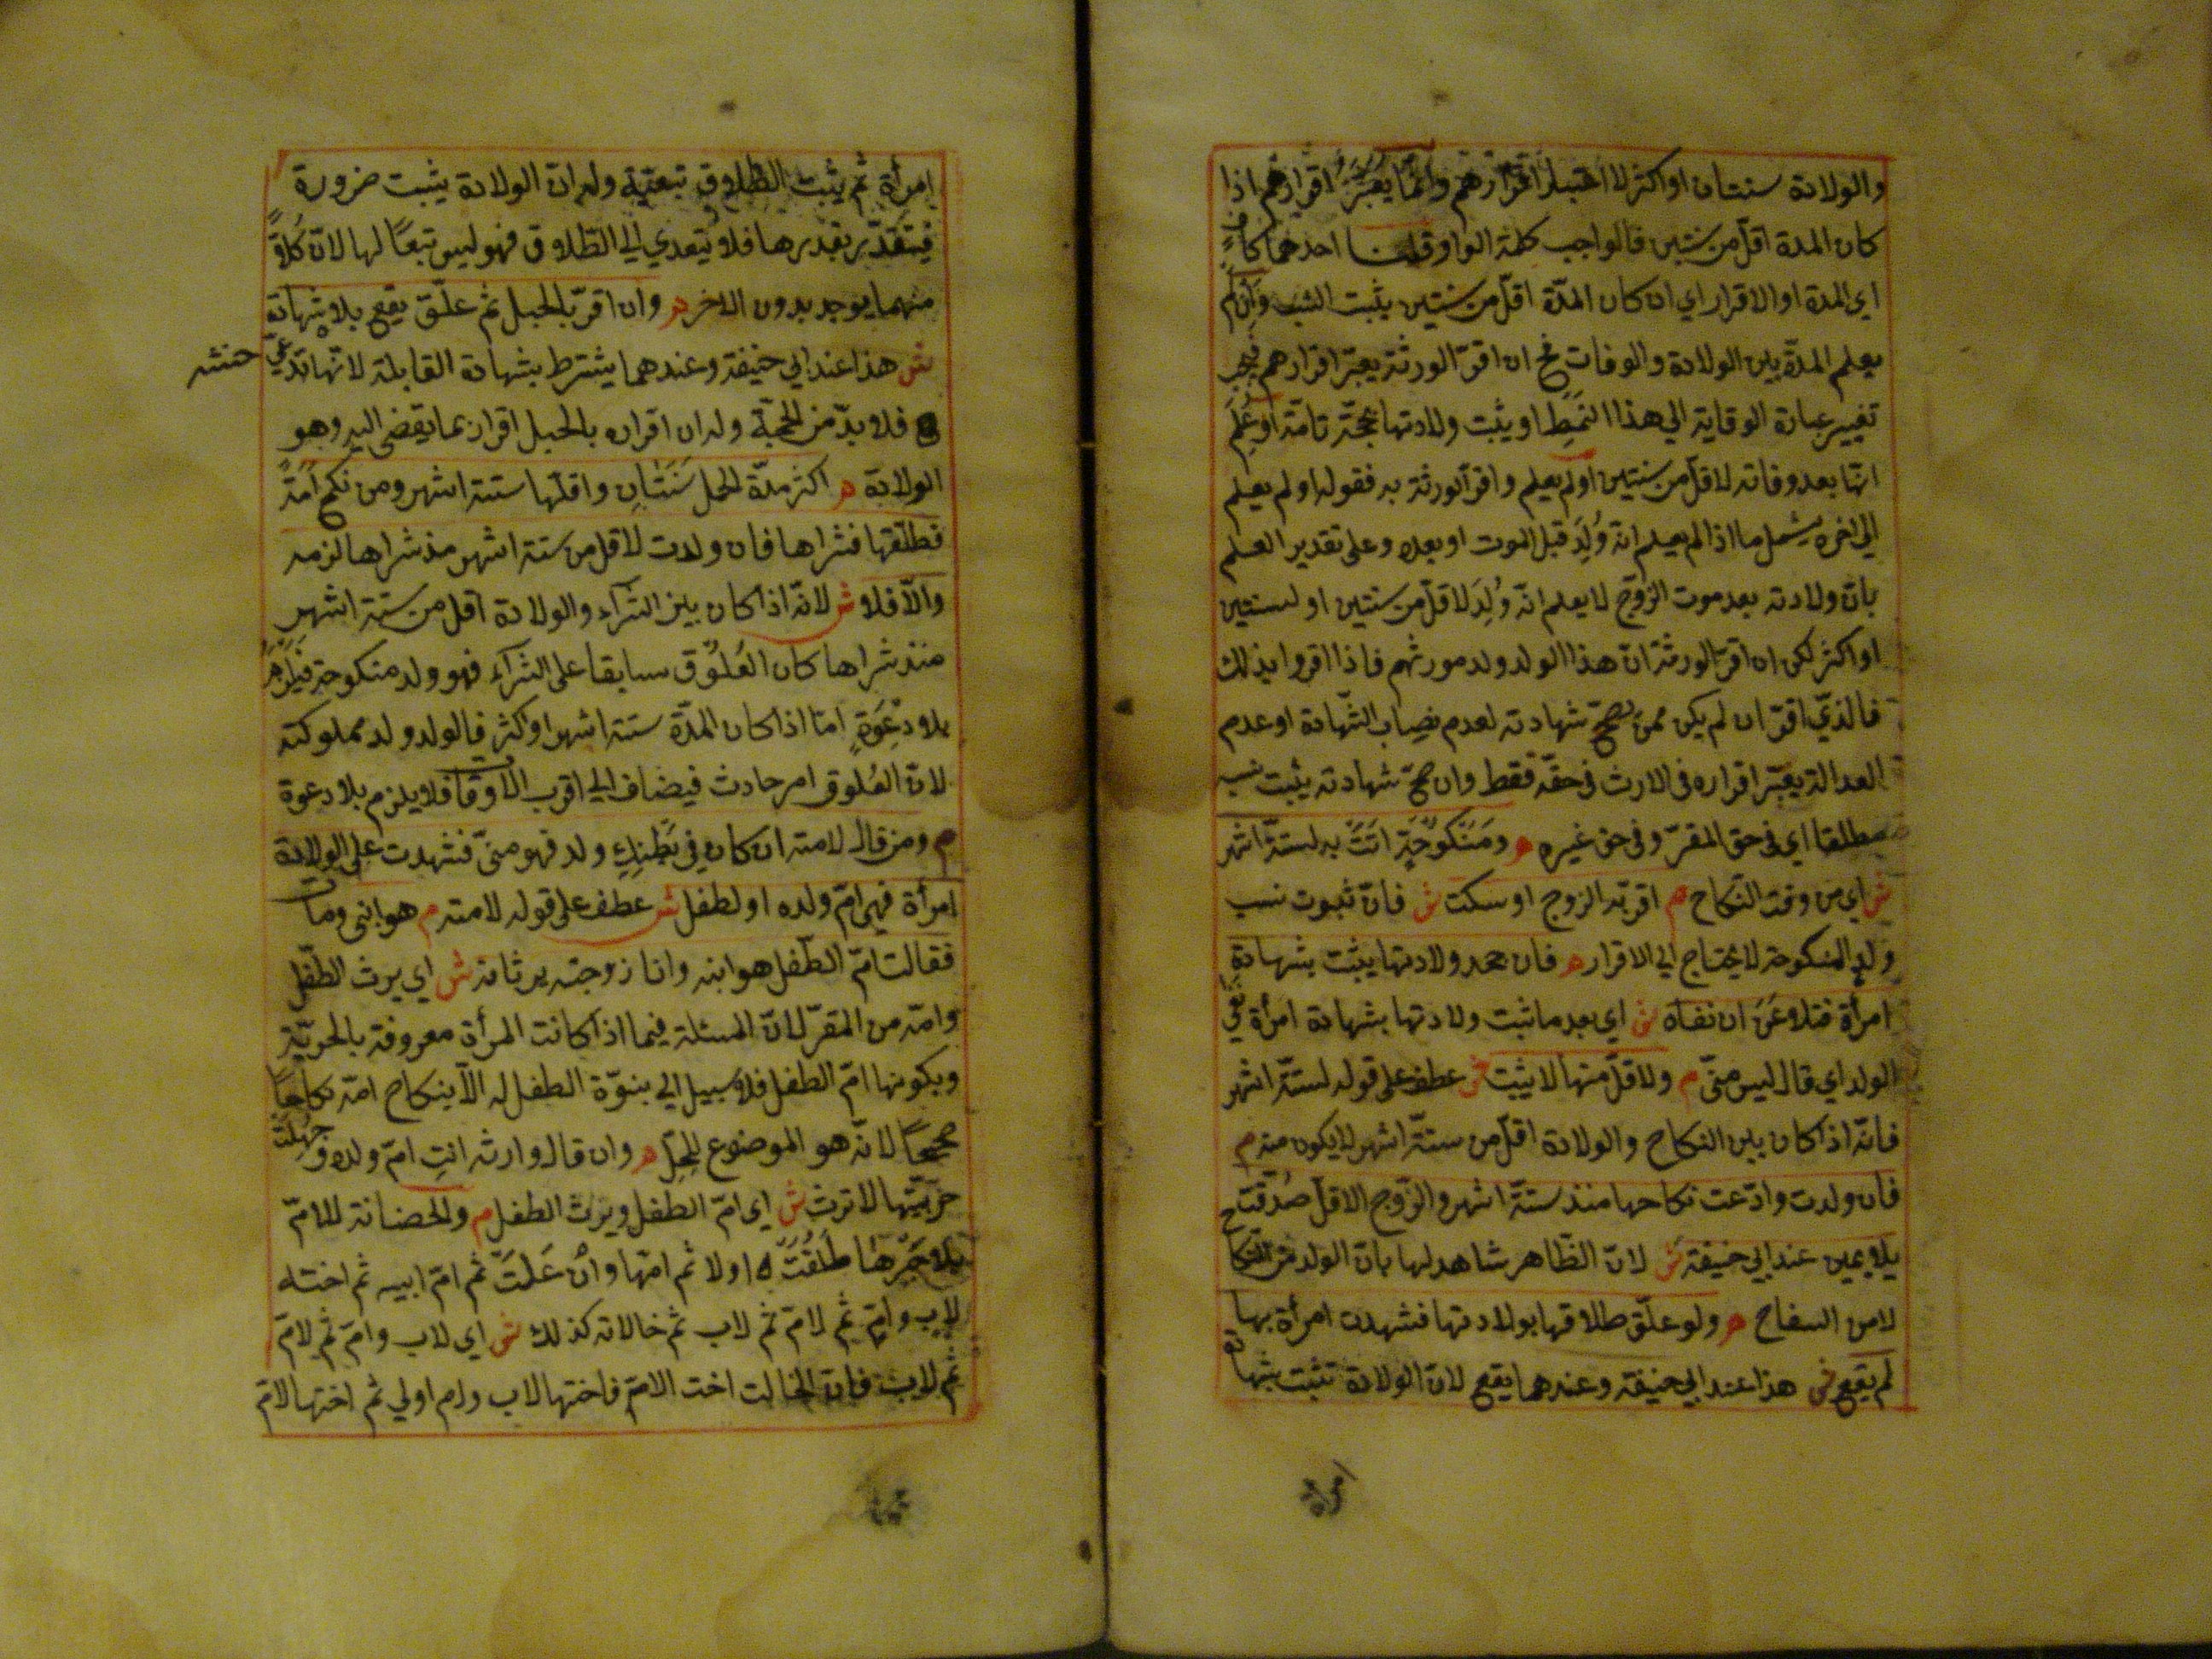 والولادة سنتان او اكثر لا اعتبار اقرارهم وانما يعتبر اقرارهم اذا
كان المدة اقل من سنتين فالواجب كلمة الواو قلنا احدهما كاف
اي المدة او الاقرار اي ان كان المدّة اقل من سنتين يثبت النسب وان لم
يعلم المدّة بين الولادة والوفات فح ان اقرّ الورثة يعتبر اقرارهم فيجب
تغيير عبارة الوقاية الي هذا النمط او يثبت ولادتها بحجّة تامّة او علم
انّها بعد وفاته لاقلّ من سنتين او لم يعلم واقرّ الورثة به فقوله او لم يعلم
الي اخره يشمل ما اذا لم يعلم انه وُلِدَ قبل الموت او بعده وعلى تقدير العلم
بانّ ولادته بعد موت الزّوج لا يعلم انّه وُلِدَ لاقلّ من سنتين او لسنتين
او اكثر لكن ان اقرّ الورثة انّ هذا الولد ولد مورثهم فاذا اقروا بذلك
فالذيّ اقرّ ان لم يكن ممن يصحّ شهادته لعدم نصاب الشّهادة او عدم
العدالة يعتبر اقراره في الارث في حقّه فقط وان صحّ شهادته يثبت نسبه
مطلقا اي في حق المقرّ وفي حق غيره م ومنكوحةٍ اتت به لستة اشهر
ش اي من وقت النّكاح م اقر به الزوج او سكت ش فانّ ثبوت نسب
ولد المنكوحة لا يحتاج الي الاقرار م فان جحد ولادتها يثبت بشهادة
امرأة فتلاعن ان نفاه ش اي بعد ما ثبت ولادتها بشهادة امرأة نفي
الولد اي قال ليس منّي م ولاقلّ منها لا يثبت ش عطف على قوله لستّة اشهر
فانّه اذا كان بين النكاح والولادة اقلّ من ستّة اشهر لا يكون منه م
فان ولدت وادّعت نكاحها منذ ستّة اشهر والزّوج الاقلّ صُدّقت
بلا يمين عند ابي حنيفة ش لانّ الظّاهر شاهد لها بانّ الولد من النكاح
لا من السفاح م ولو علّق طلاقها بولادتها فشهدت امرأة بها
لم يقع ش هذا عند ابي حنيفة وعندهما يقع لانّ الولادة تثبت بشهادة
امرأة
امرأة ثم يثبت الطلاق تبعيّة وله انّ الولادة يثبت ضرورة
فيتقدّر بقدرها فلا يتعدي الي الطّلاق فهو ليس تبعًا لها لانّ كُلاًّ
منهما يوجد بدون الاخر م وان اقرّ بالحبل ثم علّق يقع بلا شهادة
ش هذا عند ابي حنيفة وعندهما يشترط بشهادة القابلة لانّها تدّعي حنثه
فلا بدّ من الحجّة وله ان اقراره بالحبل اقرار بما يقضي اليه وهو
الولادة م اكثر مدّة الحمل سَنَتَانِ واقلّها ستة اشهر ومن نكح امَةً
فطلّقها فشراها فان ولدت لاقل من ستة اشهر مذ شراها لزمه
والاّ فلا ش لانّه اذا كان بين الشّراء والولادة اقل من ستة اشهر
منذ شراها كان العُلوق سابقا على الشّراء فهو ولد منكوحة فيلزم
بلا دعوةٍ امّا اذا كان المدّة ستة اشهر او اكثر فالولد ولد مملوكته
لانّ العُلوق امر حادث فيضاف الي اقرب الاوقات فلا يلزم بلا دعوة
م ومن قال لامته ان كان في بَطْنِكِ ولد فهو منّي فشهدت على الولادة
امرأة فهي امّ ولده او لطفل ش عطف على قوله لامته م هو ابني ومات
فقالت امّ الطّفل هو ابنه وانا زوجته يرثانه ش اي يرث الطّفل
وامّه من المقرّ لانّ المسئلة فيما اذا كانت المرأة معروفة بالحريّة
وبكونها امّ الطفل فلا سبيل الي بنوّة الطفل له الاّ بنكاح امّه نكاحًا
صحيحًا لانّه هو الموضوع للحِلّ م وان قال وارثه انتِ امّ ولده وجُهلت
حريّتها لا ترث ش اي امّ الطفل ويرث الطفل م والحضانة للامّ
بلا جبرها طلقت او لا ثم امّها وان عَلَتْ ثم امّ ابيه ثم اخته
لاب وامّ ثم لامّ ثم لاب ثم خالاته كذلك ش اي لاب وامّ ثم لامّ
ثم لاب فانّ الخالة اخت الامّ فاختها لاب وام اولي ثم اختها لامّ